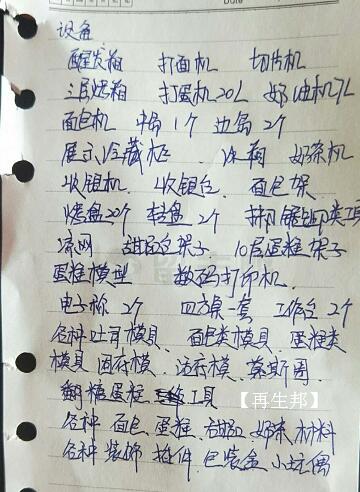 Date
设备
醒发箱 打面机 切片机
三层烤箱 打蛋机20L 奶油机7L
面包机 中岛1个 边岛2个
展示冷藏柜、冰箱 奶茶机
收银机、收银台、面包架
烤盘20个 转盘2个 裱花锯齿类工具
凉网 甜品台架子 10层蛋糕架子
蛋糕模型 数码打印机
电子称2个 四方桌一套 工作台2个
各种吐司模具、面包类模具 蛋糕类
模具 固底模、活底模、慕斯圈
翻糖蛋糕 工具
【再生邦】
各种 面包 蛋糕、甜品 奶茶材料
各种 装饰 插件、包装盒 小玩偶